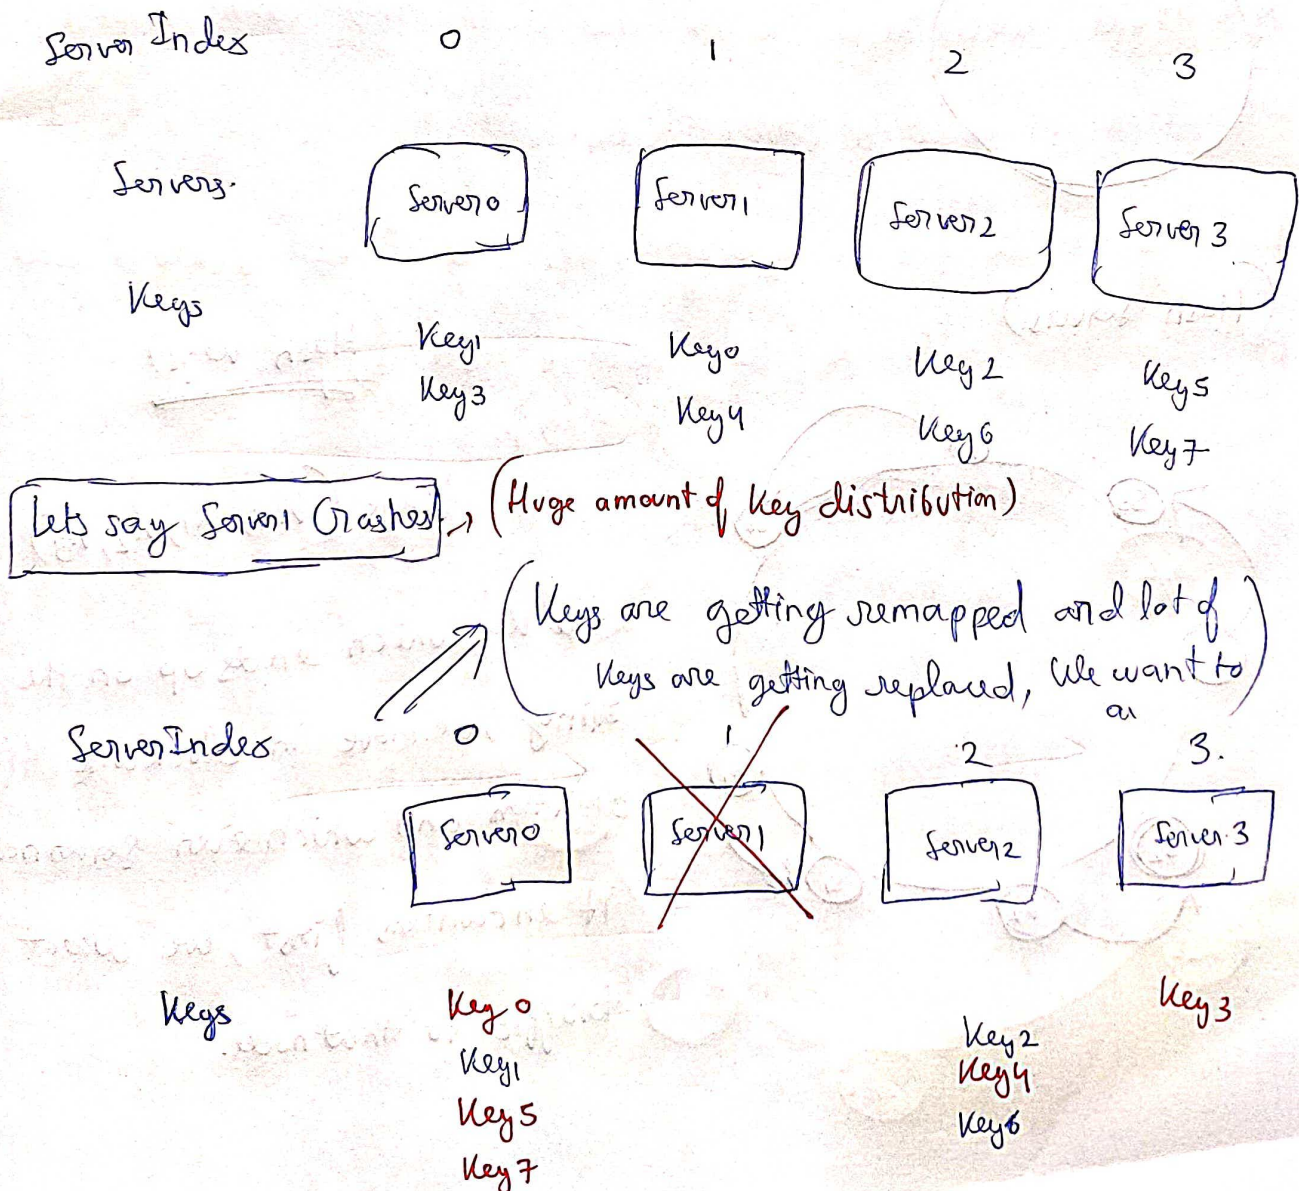 Server Index 0 1 2 3
Servers. Server0 Server1 Server2 Server 3
Keys
Key1 Key0 Key2 Key5
Key3 Key4 Key6 Key7
Lets say Server1 Crashes → (Huge amount of Key distribution)
(Keys are getting remapped and lot of
Keys are getting replaced, We want to)
a
ServerIndex 0 1 2 3.
Server0 Server1 Server2 Server 3
Keys Key 0 Key2 Key3
Key1 Key4
Key5 Key6
Key7